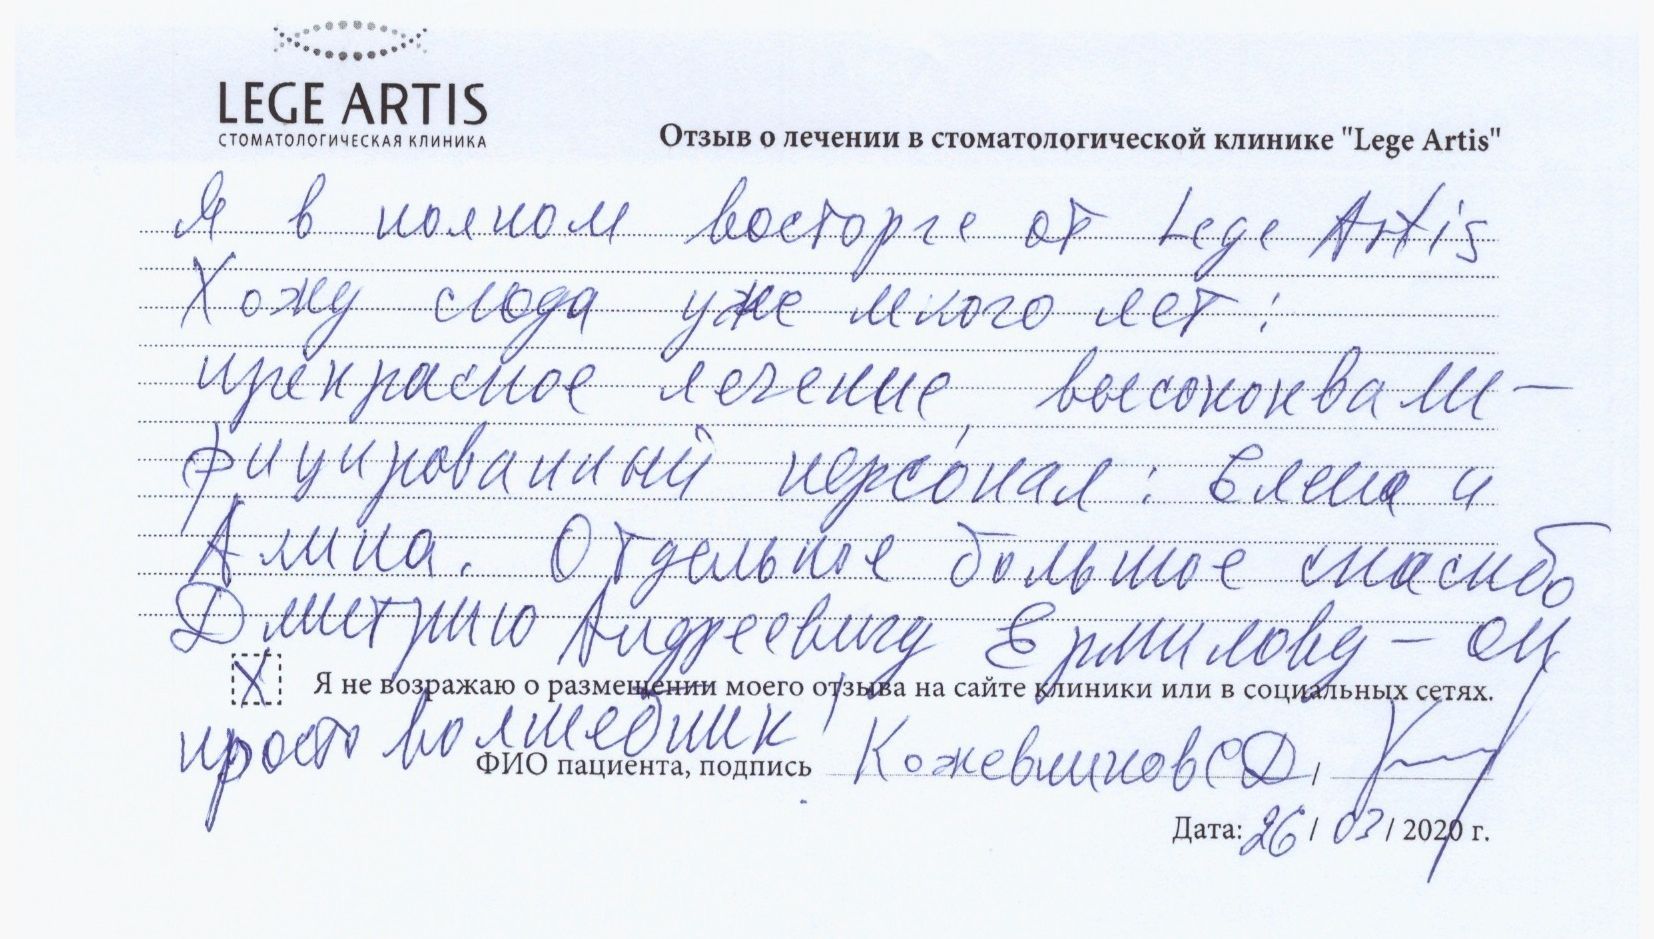 LEGE ARTIS
СТОМАТОЛОГИЧЕСКАЯ КЛИНИКА
Отзыв о лечении в стоматологической клинике "Lege Artis"
Я в полном восторге от Lege Artis
Хожу сюда уже много лет:
прекрасное лечение высококвали-
фицированный персонал: Елена и
Алина. Отдельное большое спасибо
Дмитрию Андреевичу Ермилову – он
X Я не возражаю о размещении моего отзыва на сайте клиники или в социальных сетях.
просто волшебник!
ФИО пациента, подпись Кожевников СД /
Дата: 26 / 03 / 2020 г.